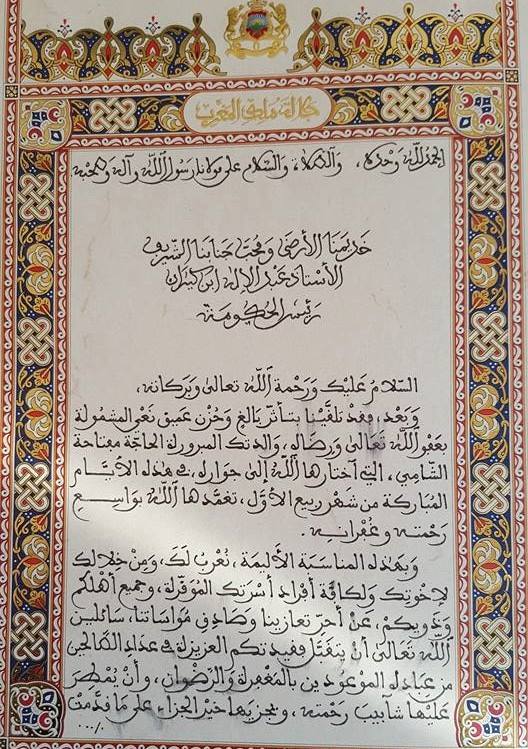 جلالة ملك المغرب
الحمد لله وحده، والصلاة والسلام على مولانا رسول الله وآله وصحبه
خديمنا الأرضى ومحب جنابنا الشريف
الأستاذ عبد الإله ابن كيران
رئيس الحكومة
السلام عليك ورحمة الله تعالى وبركاته،
وبعد، فقد تلقينا بتأثر بالغ وحزن عميق نعي المشمولة
بعفو الله تعالى ورضاه، والدتك المبرورة الحاجة مفتاحة
الشامي، التي اختارها الله إلى جواره، في هذه الأيام
المباركة من شهر ربيع الأول، تغمدها الله بواسع
رحمته وغفرانه.
وبهذه المناسبة الأليمة، نعرب لك، ومن خلالك
لإخوتك ولكافة أفراد أسرتك الموقرة، وجميع أهلكم
وذويكم، عن أحر تعازينا وصادق مواساتنا، سائلين
الله تعالى أن يتقبل فقيدتكم العزيزة في عداد الصالحين
من عباده الموعودين بالمغفرة والرضوان، وأن يمطر
عليها شآبيب رحمته، ويجزيها خير الجزاء على ما قدمت